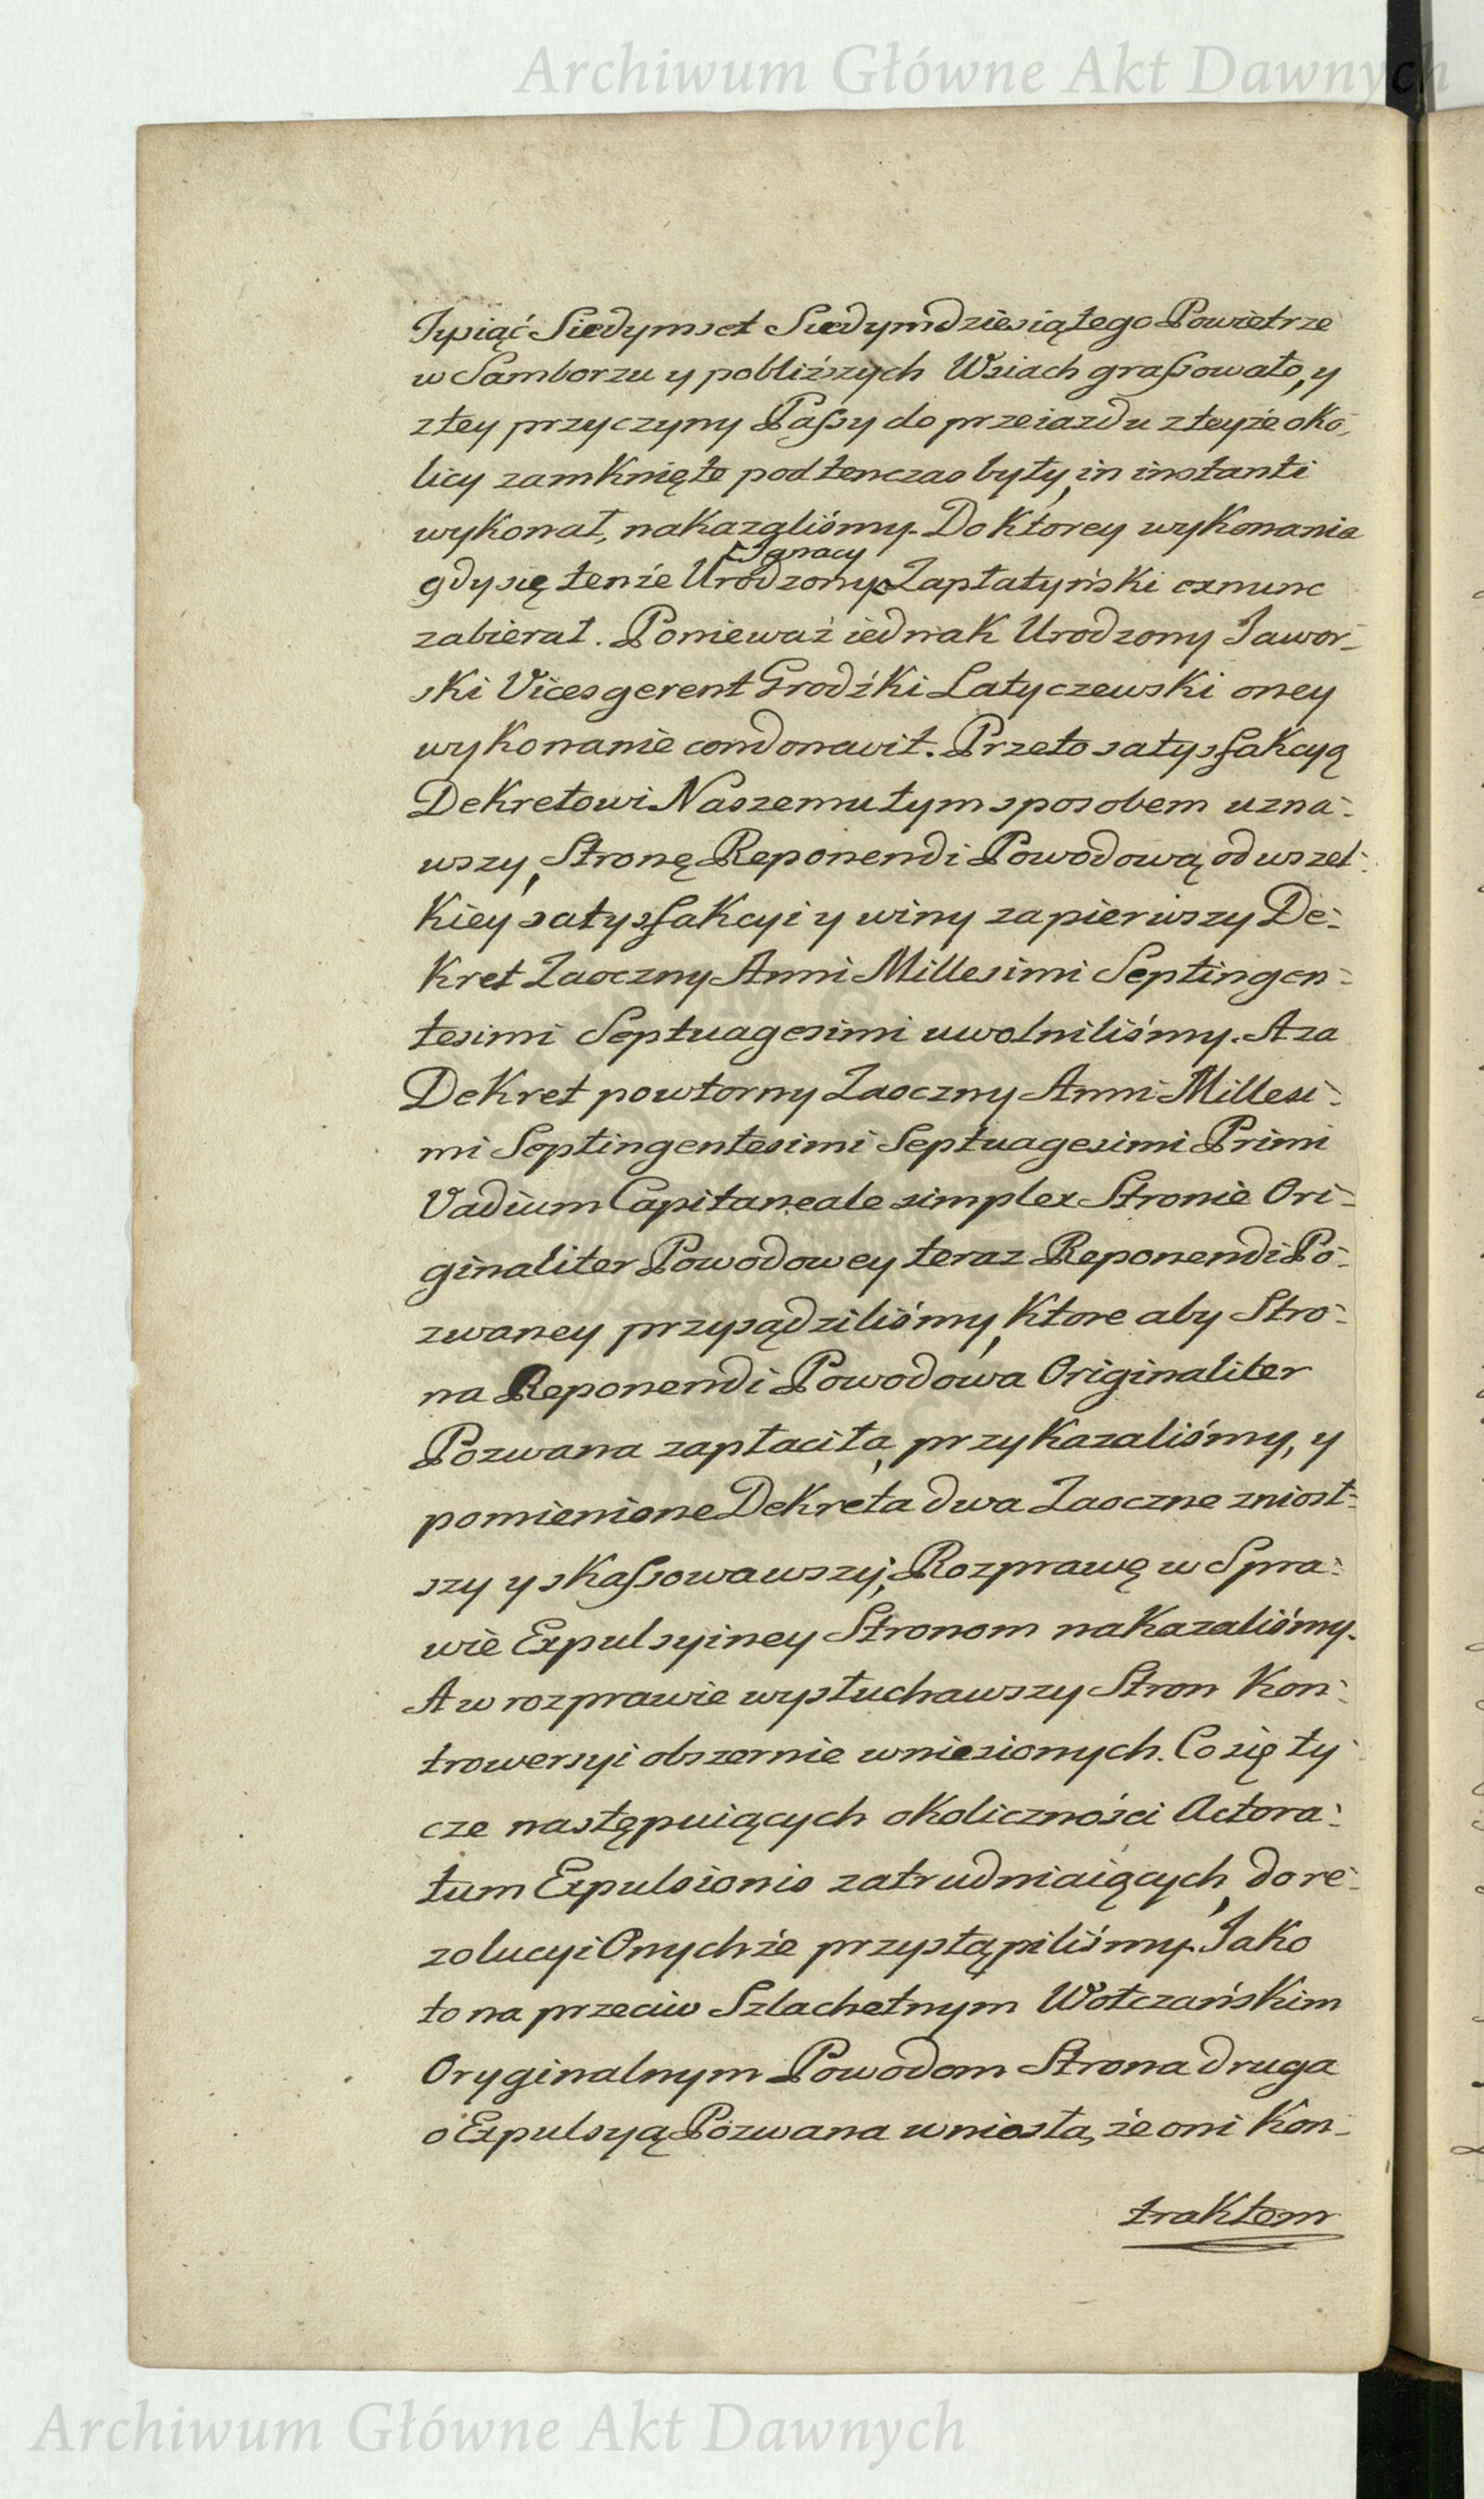 Archiwum Główne Akt Dawnych
Tysiąć Siedymset Siedymdziesiątego Powietrze
w Samborzu y pobliższych Wsiach grassowało, y
z tey przyczyny Passy do przeiazdu z teyże oko-
licy zamknięte podtenczas były, in instanti
wykonał, nakazaliśmy. Do ktorey wykonania
Ignacy
gdy się tenże Urodzony Zapłatyński exnunc
zabierał. Ponieważ iednak Urodzony Jawor-
ski Vicesgerent Grodźki Latyczewski oney
wykonanie condonavit. Przeto satysfakcyą
Dekretowi Naszemu tym sposobem uzna-
wszy, Stronę Reponendi Powodową od wszel-
kiey satysfakcyi y winy za pierwszy De-
kret Zaoczny Anni Millesimi Septingen-
tesimi Septuagesimi uwolniliśmy. A za
Dekret powtorny Zaoczny Anni Millesi-
mi Septingentesimi Septuagesimi Primi
Vadium Capitaneale simplex Stronie Ori-
ginaliter Powodowey teraz Reponendi Po-
zwaney przysądziliśmy, ktore aby Stro-
na Reponendi Powodowa Originaliter
Pozwana zapłaciła, przykazaliśmy, y
pomienione Dekreta dwa Zaoczne zniosł-
szy y skassowawszy, Rozprawę w Spra-
wie Expulsyiney Stronom nakazaliśmy.
A w rozprawie wysłuchawszy Stron Kon-
trowersyi obszernie wniesionych. Co się ty-
cze następuiących okoliczności Actora-
tum Expulsionis zatrudniaiących, do re-
zolucyi Onychże przystąpiliśmy. Jako
to na przeciw Szlachetnym Wołczańskim
Oryginalnym Powodom Strona druga
o Expulsyą Pozwana wniosła, że oni Kon-
traktem
Archiwum Główne Akt Dawnych